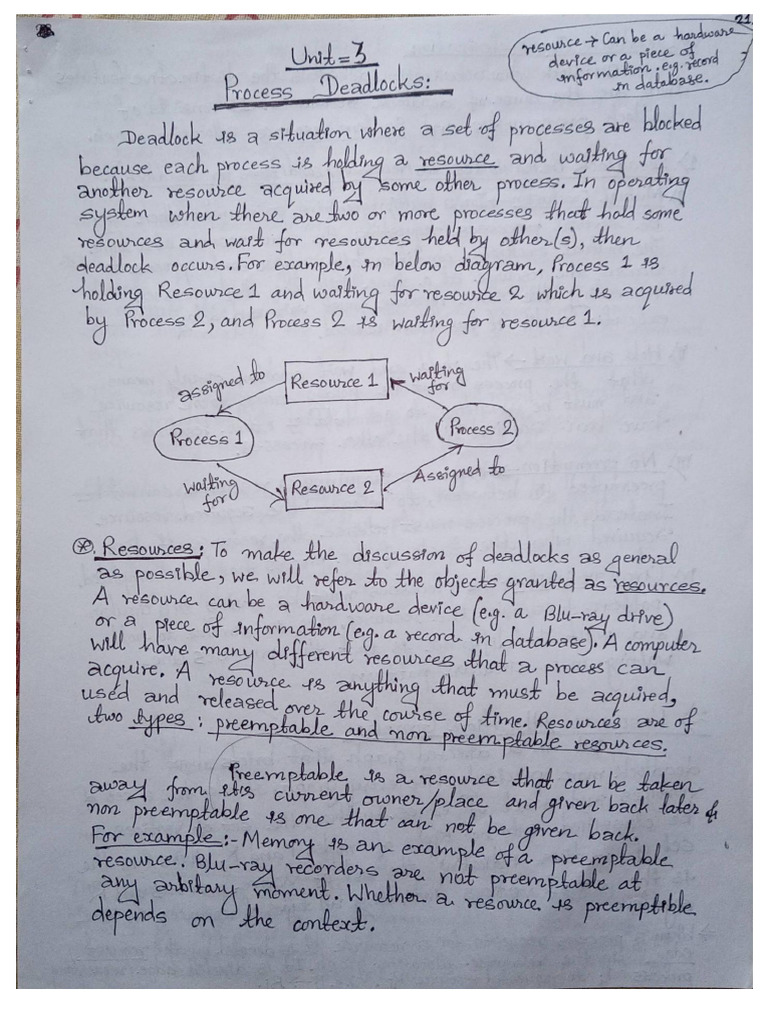 21
resource → Can be a hardware
device or a piece of
information. e.g. record
in database.
Unit = 3
Process Deadlocks:
Deadlock is a situation where a set of processes are blocked
because each process is holding a resource and waiting for
another resource acquired by some other process. In operating
system when there are two or more processes that hold some
resources and wait for resources held by other(s), then
deadlock occurs. For example, in below diagram, Process 1 is
holding Resource 1 and waiting for resource 2 which is acquired
by Process 2, and Process 2 is waiting for resource 1.
assigned to
Resource 1
waiting
for
Process 1
Process 2
waiting
for
Resource 2
Assigned to
Resources: To make the discussion of deadlocks as general
as possible, we will refer to the objects granted as resources.
A resource can be a hardware device (e.g. a Blu-ray drive)
or a piece of information (e.g. a record in database). A computer
will have many different resources that a process can
acquire. A resource is anything that must be acquired,
used and released over the course of time. Resources are of
two types: preemptable and non preemptable resources.
Preemptable is a resource that can be taken
away from its current owner/place and given back later &
non preemptable is one that can not be given back.
For example:- Memory is an example of a preemptable
resource. Blu-ray recorders are not preemptable at
any arbitary moment. Whether a resource is preemptible
depends on the context.